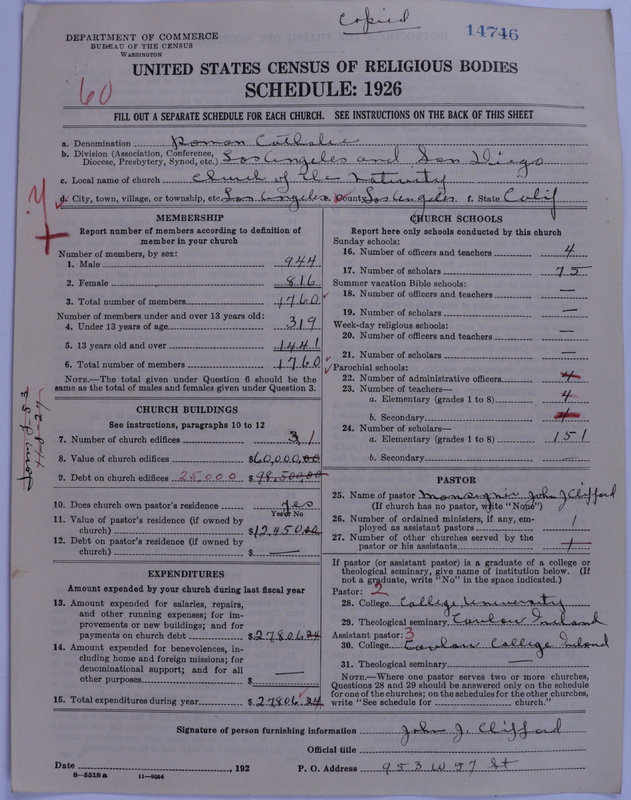 Copied
14746
DEPARTMENT OF COMMERCE
BUREAU OF THE CENSUS
WASHINGTON
60
UNITED STATES CENSUS OF RELIGIOUS BODIES
SCHEDULE: 1926
FILL OUT A SEPARATE SCHEDULE FOR EACH CHURCH. SEE INSTRUCTIONS ON THE BACK OF THIS SHEET
a. Denomination Roman Catholic
b. Division (Association, Conference, Diocese, Presbytery, Synod, etc.) Los Angeles and San Diego
c. Local name of church Church of the Nativity
d. City, town, village, or township, etc. Los Angeles e. County Los Angeles f. State Calif
MEMBERSHIP
Report number of members according to definition of
member in your church
Number of members, by sex:
1. Male 944
2. Female 816
3. Total number of members 1760
Number of members under and over 13 years old:
4. Under 13 years of age 319
5. 13 years old and over 1441
6. Total number of members 1760
NOTE.—The total given under Question 6 should be the
same as the total of males and females given under Question 3.
CHURCH BUILDINGS
See instructions, paragraphs 10 to 12
7. Number of church edifices 3 1
8. Value of church edifices $60,000.00
9. Debt on church edifices 25,000 $98,500.00
10. Does church own pastor's residence yes
Yes or No
11. Value of pastor's residence (if owned by
church) $12,450.00
12. Debt on pastor's residence (if owned by
church) $ —
EXPENDITURES
Amount expended by your church during last fiscal year
13. Amount expended for salaries, repairs,
and other running expenses; for im-
provements or new buildings; and for
payments on church debt $27806.24
14. Amount expended for benevolences, in-
cluding home and foreign missions; for
denominational support; and for all
other purposes $ —
15. Total expenditures during year $27806.24
CHURCH SCHOOLS
Report here only schools conducted by this church
Sunday schools:
16. Number of officers and teachers 4
17. Number of scholars 75
Summer vacation Bible schools:
18. Number of officers and teachers —
19. Number of scholars —
Week-day religious schools:
20. Number of officers and teachers —
21. Number of scholars —
Parochial schools:
22. Number of administrative officers 4
23. Number of teachers—
a. Elementary (grades 1 to 8) 4
b. Secondary
24. Number of scholars—
a. Elementary (grades 1 to 8) 151
b. Secondary —
PASTOR
25. Name of pastor Monsignor John J Clifford
(If church has no pastor, write "None")
26. Number of ordained ministers, if any, em-
ployed as assistant pastors 1
27. Number of other churches served by the
pastor or his assistants
If pastor (or assistant pastor) is a graduate of a college or
theological seminary, give name of institution below. (If
not a graduate, write "No" in the space indicated.)
Pastor: 2
28. College College University
29. Theological seminary Carlow Ireland
Assistant pastor: 3
30. College Carlow College Ireland
31. Theological seminary —
NOTE.—Where one pastor serves two or more churches,
Questions 28 and 29 should be answered only on the schedule
for one of the churches; on the schedules for the other churches,
write "See schedule for church."
Signature of person furnishing information John J. Clifford
Official title
Date , 192
P. O. Address 953 W 57 St
8—5518 a 11—9264